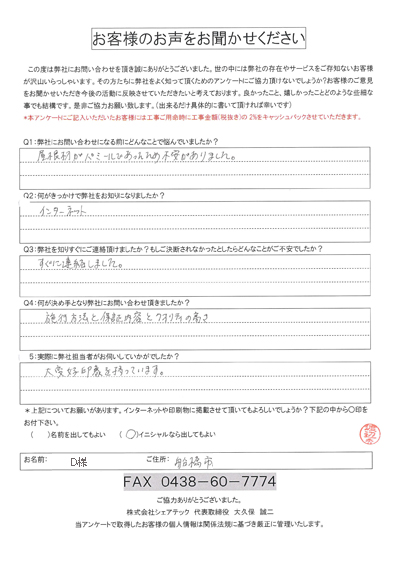 お客様のお声をお聞かせください
この度は弊社にお問い合わせを頂き誠にありがとうございました。世の中には弊社の存在やサービスをご存知ないお客様
が沢山いらっしゃいます。その方たちに弊社をよく知って頂くためのアンケートにご協力頂けないでしょうか?お客様のご意見
をお聞かせいただき今後の活動に反映させていただきたいと考えております。良かったこと、嬉しかったことどのような些細な
事でも結構です。是非ご協力お願い致します。(出来るだけ具体的に書いて頂ければ幸いです)
*本アンケートにご記入いただいたお客様には工事ご用命時に工事金額(税抜き)の 2%をキャッシュバックさせていただきます。
Q1:弊社にお問い合わせになる前にどんなことで悩んでいましたか?
屋根材がパミールであったため不安がありました。
Q2:何がきっかけで弊社をお知りになりましたか?
インターネット
Q3:弊社を知りすぐにご連絡頂けましたか?もしご決断されなかったとしたらどんなことがご不安でしたか?
すぐに連絡しました。
Q4:何が決め手となり弊社にお問い合わせ頂きましたか?
施行方法と保証内容とクオリティの高さ
5:実際に弊社担当者がお伺いしていかがでしたか?
大変好印象を持っています。
*上記についてお願いがあります。インターネットや印刷物に掲載させて頂いてもよろしいでしょうか?下記の中から〇印を
お付下さい。
( )名前を出してもよい (〇)イニシャルなら出してもよい
お名前: D様 ご住所: 船橋市
FAX 0438-60-7774
ご協力ありがとうございました。
株式会社シェアテック 代表取締役 大久保 誠二
当アンケートで取得したお客様の個人情報は関係法規に基づき厳正に管理いたします。